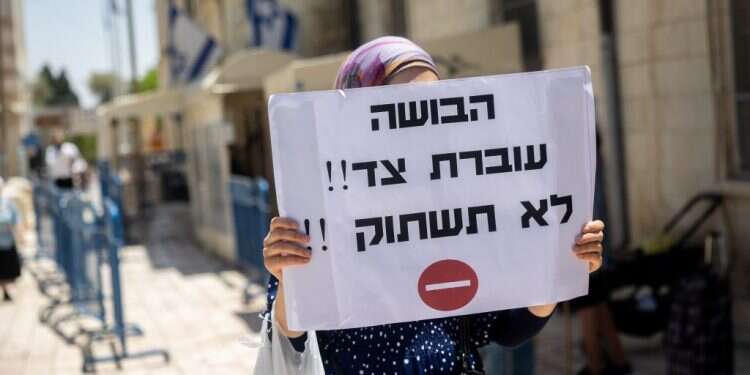 הבושה
עוברת צד!!
לא תשתוק !!